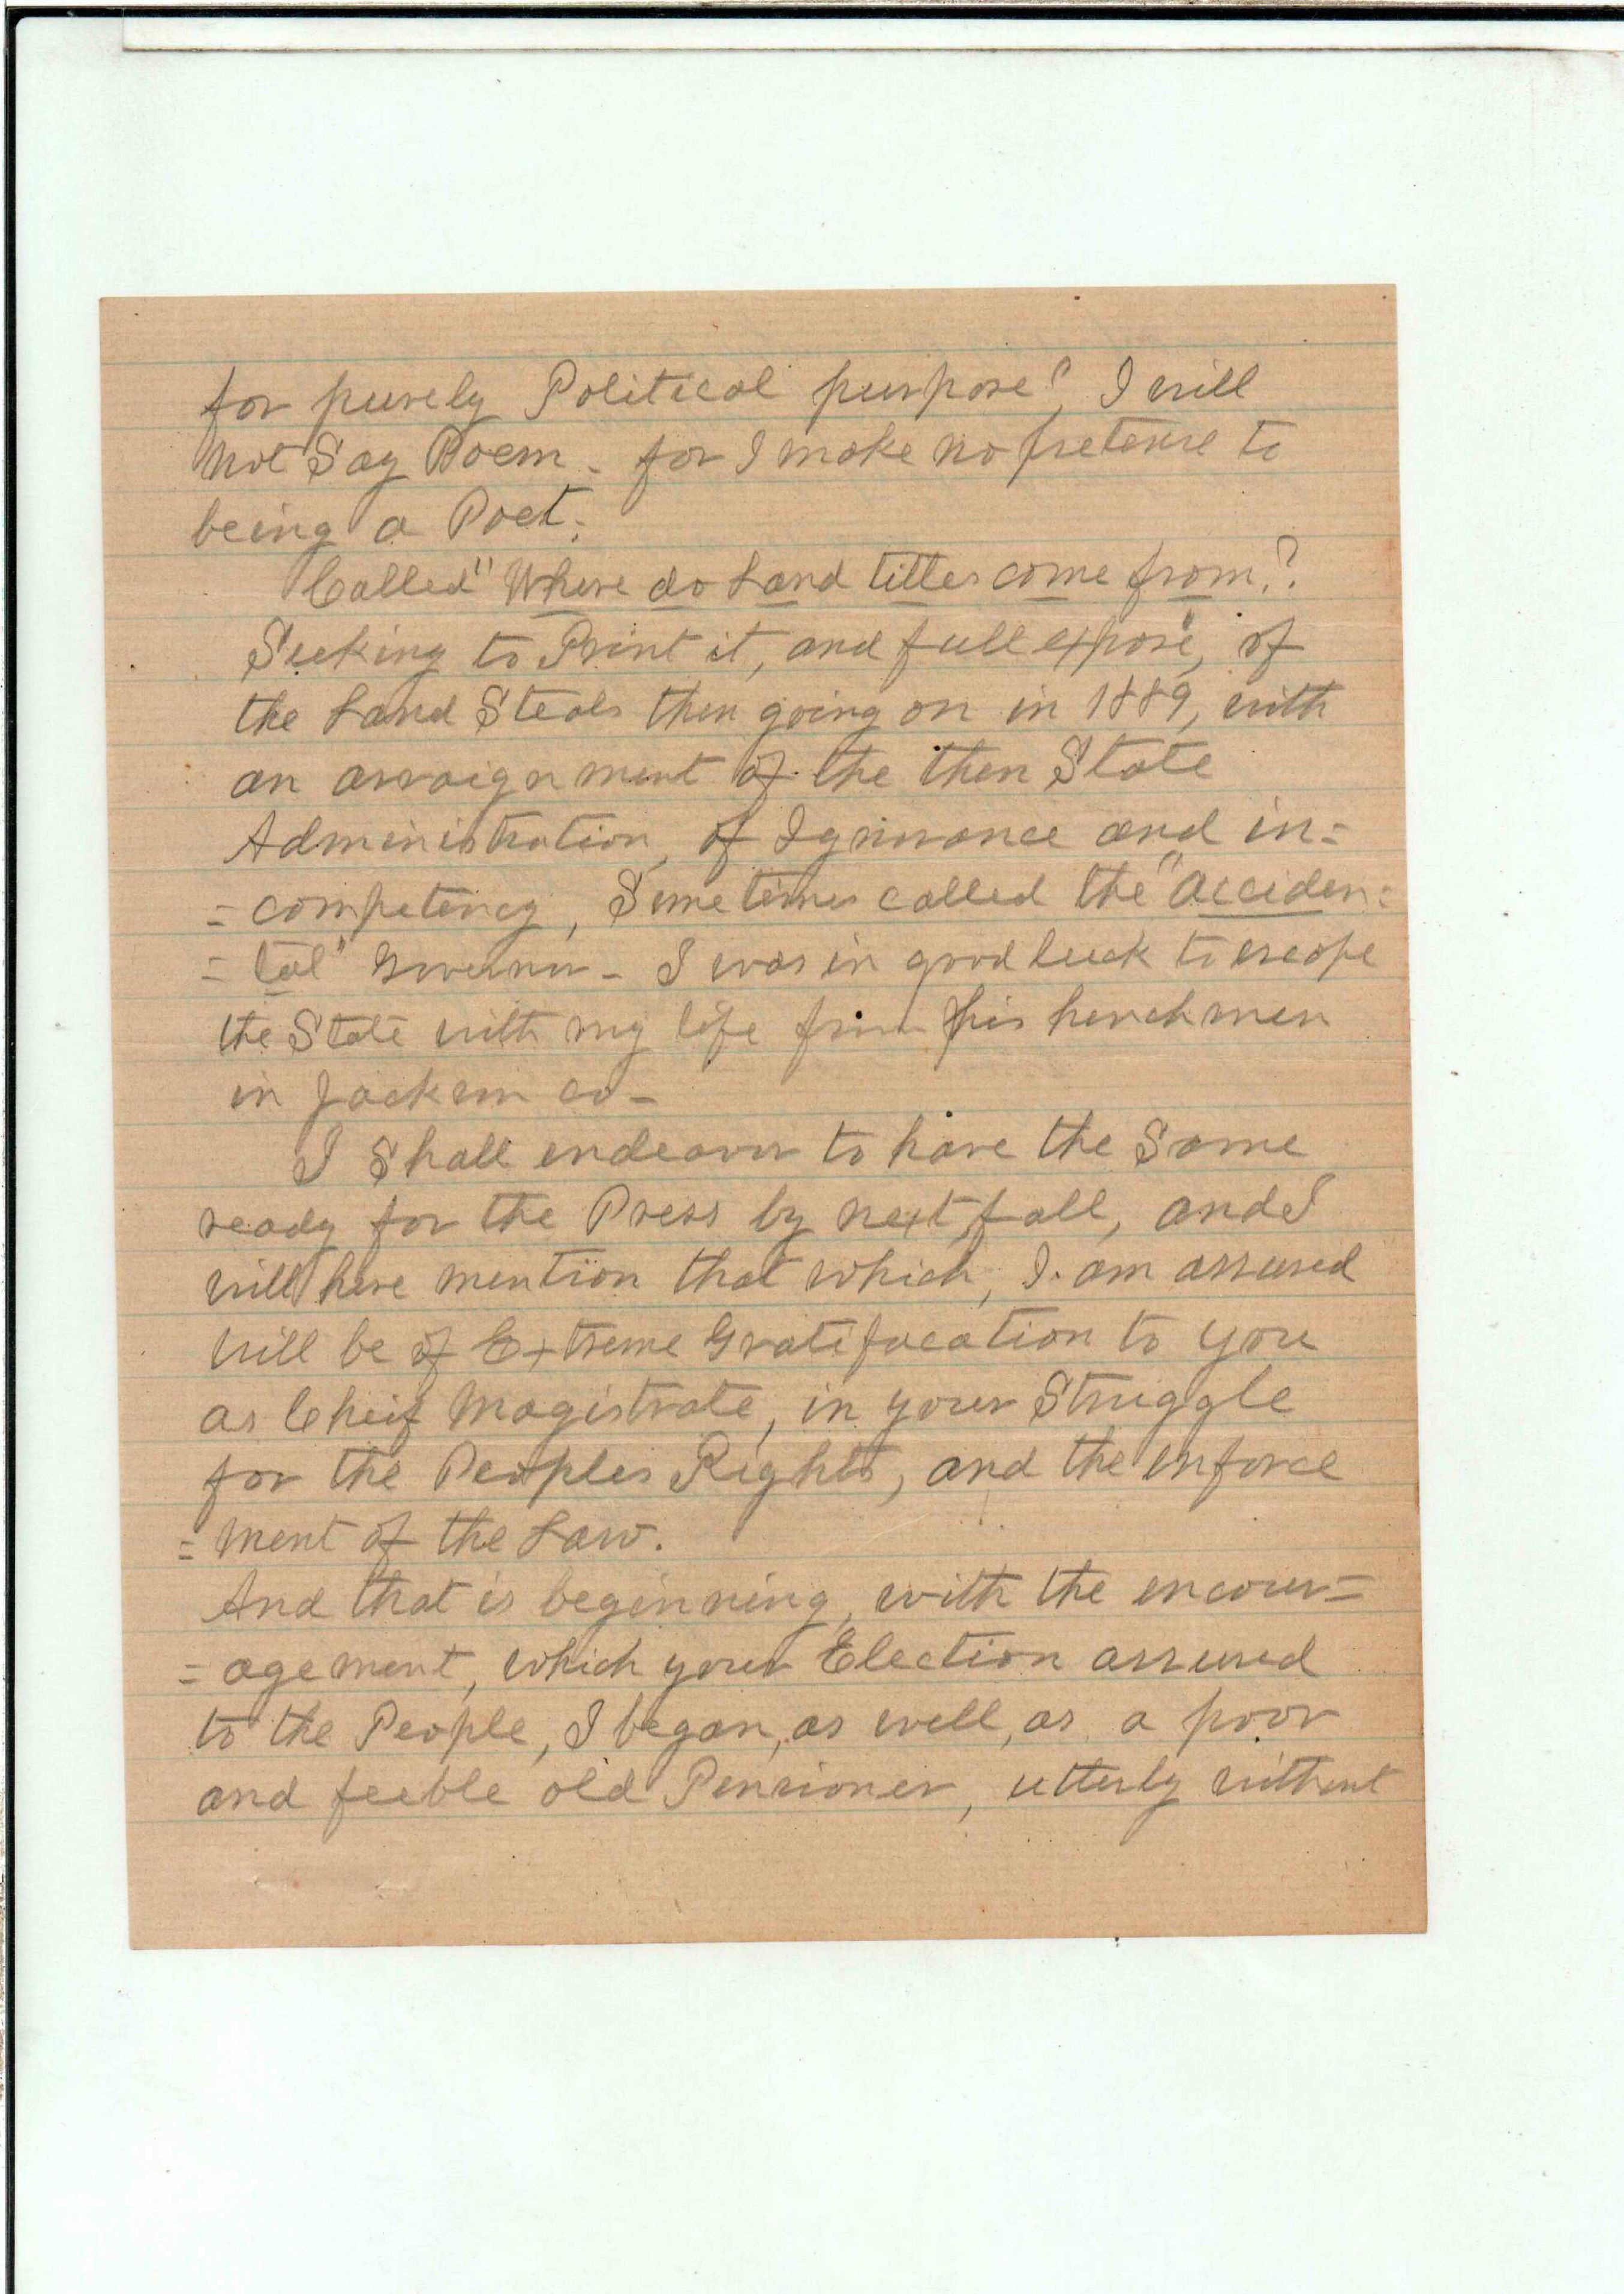 for purely Political purpose", I will
not Say Poem - for I make no pretense to
being a Poet.
Called "Where do Land titles come from"?
Seeking to Print it, and full exposè, of
the Land Steals then going on in 1889, with
an arraignment of the then State
Administration, of Ignorance and in=
=competency, Sometimes called the "acciden=
=tal" Governor - I was in good luck to escape
the State with my life from his henchmen
in Jackson co -
I Shall endeavor to have the Same
ready for the Press by next fall, and I
will here mention that which, I am assured
will be of Extreme Gratifacation to you
as Cheif Magistrate, in your Struggle
for the Peoples Rights, and the enforce
=ment of the Law.
And that is beginning, with the encour=
=agement, which your Election assured
to the People, I began, as well, as a poor
and feeble old Pensioner, utterly without